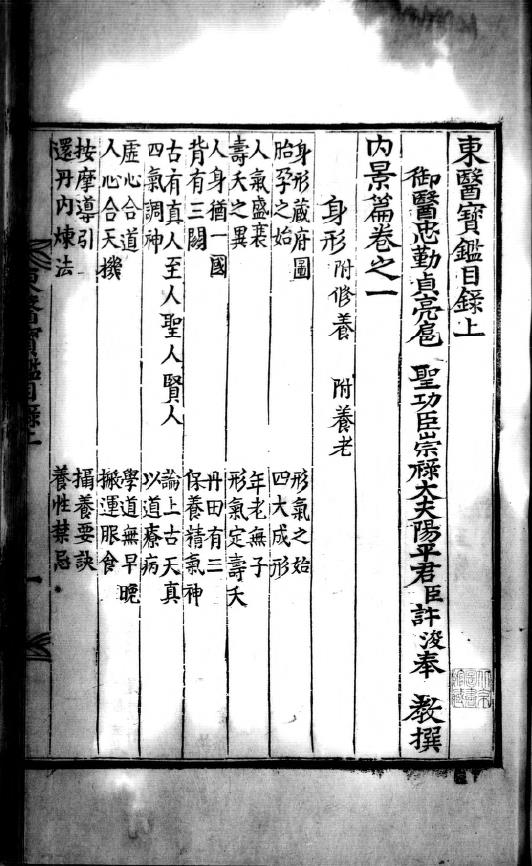 東醫寶鑑目録上
御醫忠勤貞亮扈 聖功臣崇禄大夫陽平君臣許浚奉 教撰
内景篇卷之一
身形 附修養 附養老
身形藏府圖 形氣之始
胎孕之始 四大成形
人氣盛衰 年老無子
壽夭之異 形氣定壽夭
人身猶一國 丹田有三
背有三關 保養精氣神
古有真人至人聖人賢人 論上古天真
四氣調神 以道療病
虛心合道 學道無早晚
人心合天機 搬運服食
按摩導引 攝養要訣
還丹内煉法 養性禁忌
東醫寶鑑目錄上 一